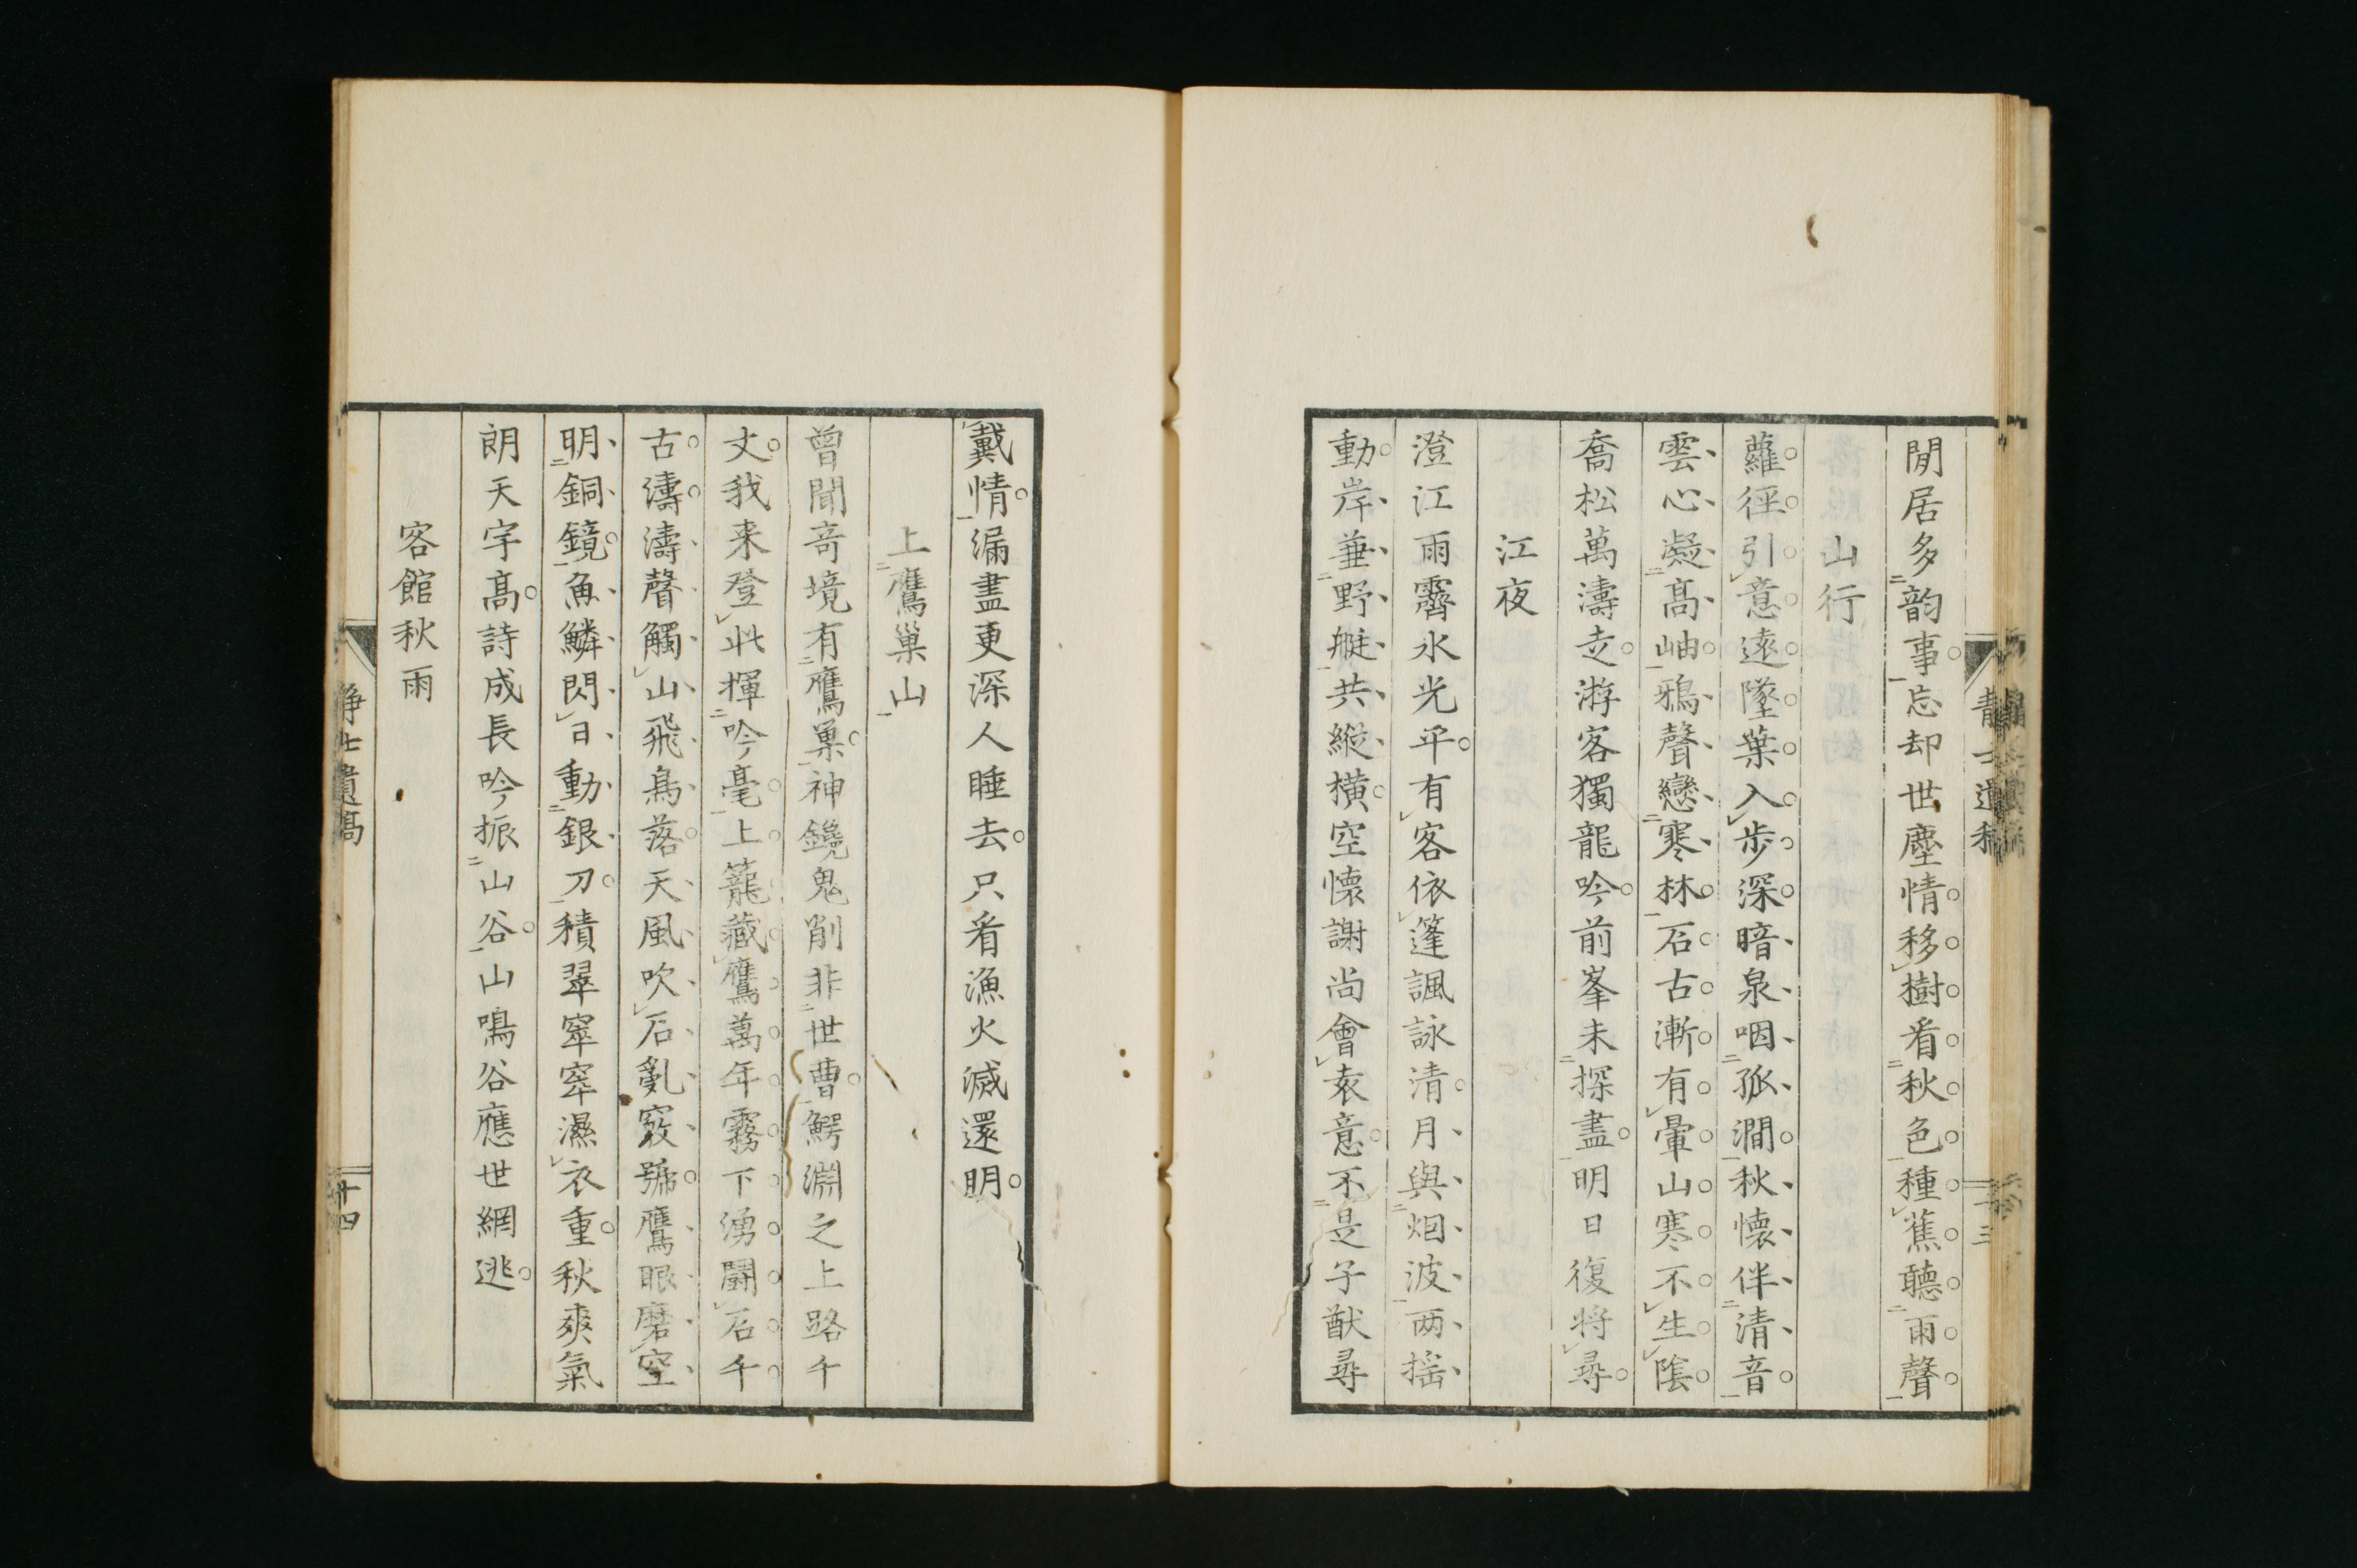 閒居多韵事忘却世塵情移樹看秋色種蕉聽雨聲
山行
蘿徑引意遠墜葉入步深暗泉咽孤澗秋懷伴清音
雲心凝高岫鴉聲戀寒林石古漸有暈山寒不生陰
喬松萬濤走游客獨龍吟前峯未探盡明日復將尋
江夜
澄江雨霽水光平有客依篷諷詠清月與烟波两搖
動岸兼野艇共縱橫空懷謝尚會袁意不是子猷尋
戴情漏盡更深人睡去只看漁火滅還明
上鷹巢山
曾聞竒境有鷹巢神鑱鬼削非世曹鰐淵之上路千
丈我来登此揮吟毫上籠藏鷹萬年霧下湧鬪石千
古濤濤聲觸山飛鳥落天風吹石亂竅號鷹眼磨空
明銅鏡魚鱗閃日動銀刀積翠窣窣濕衣重秋爽氣
朗天宇高詩成長吟振山谷山鳴谷應世網逃
客館秋雨
十四